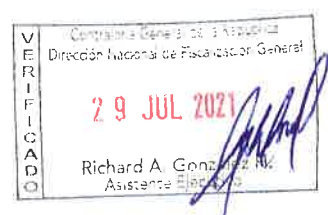 VERIFICADO
Contraloría General de la República
Dirección Nacional de Fiscalización General
29 JUL 2021
Richard A.
Asistente